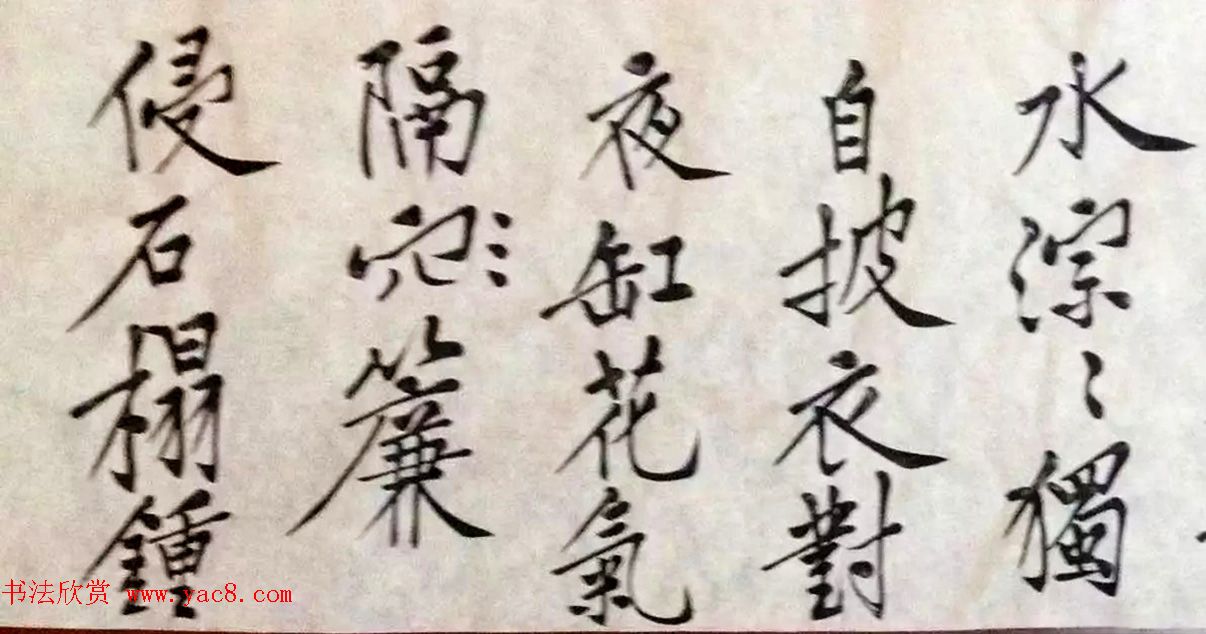 水淙〻獨
自披衣對
夜缸花氣
隔
簾
侵石榻鍾
书法欣赏 www.yac8.com